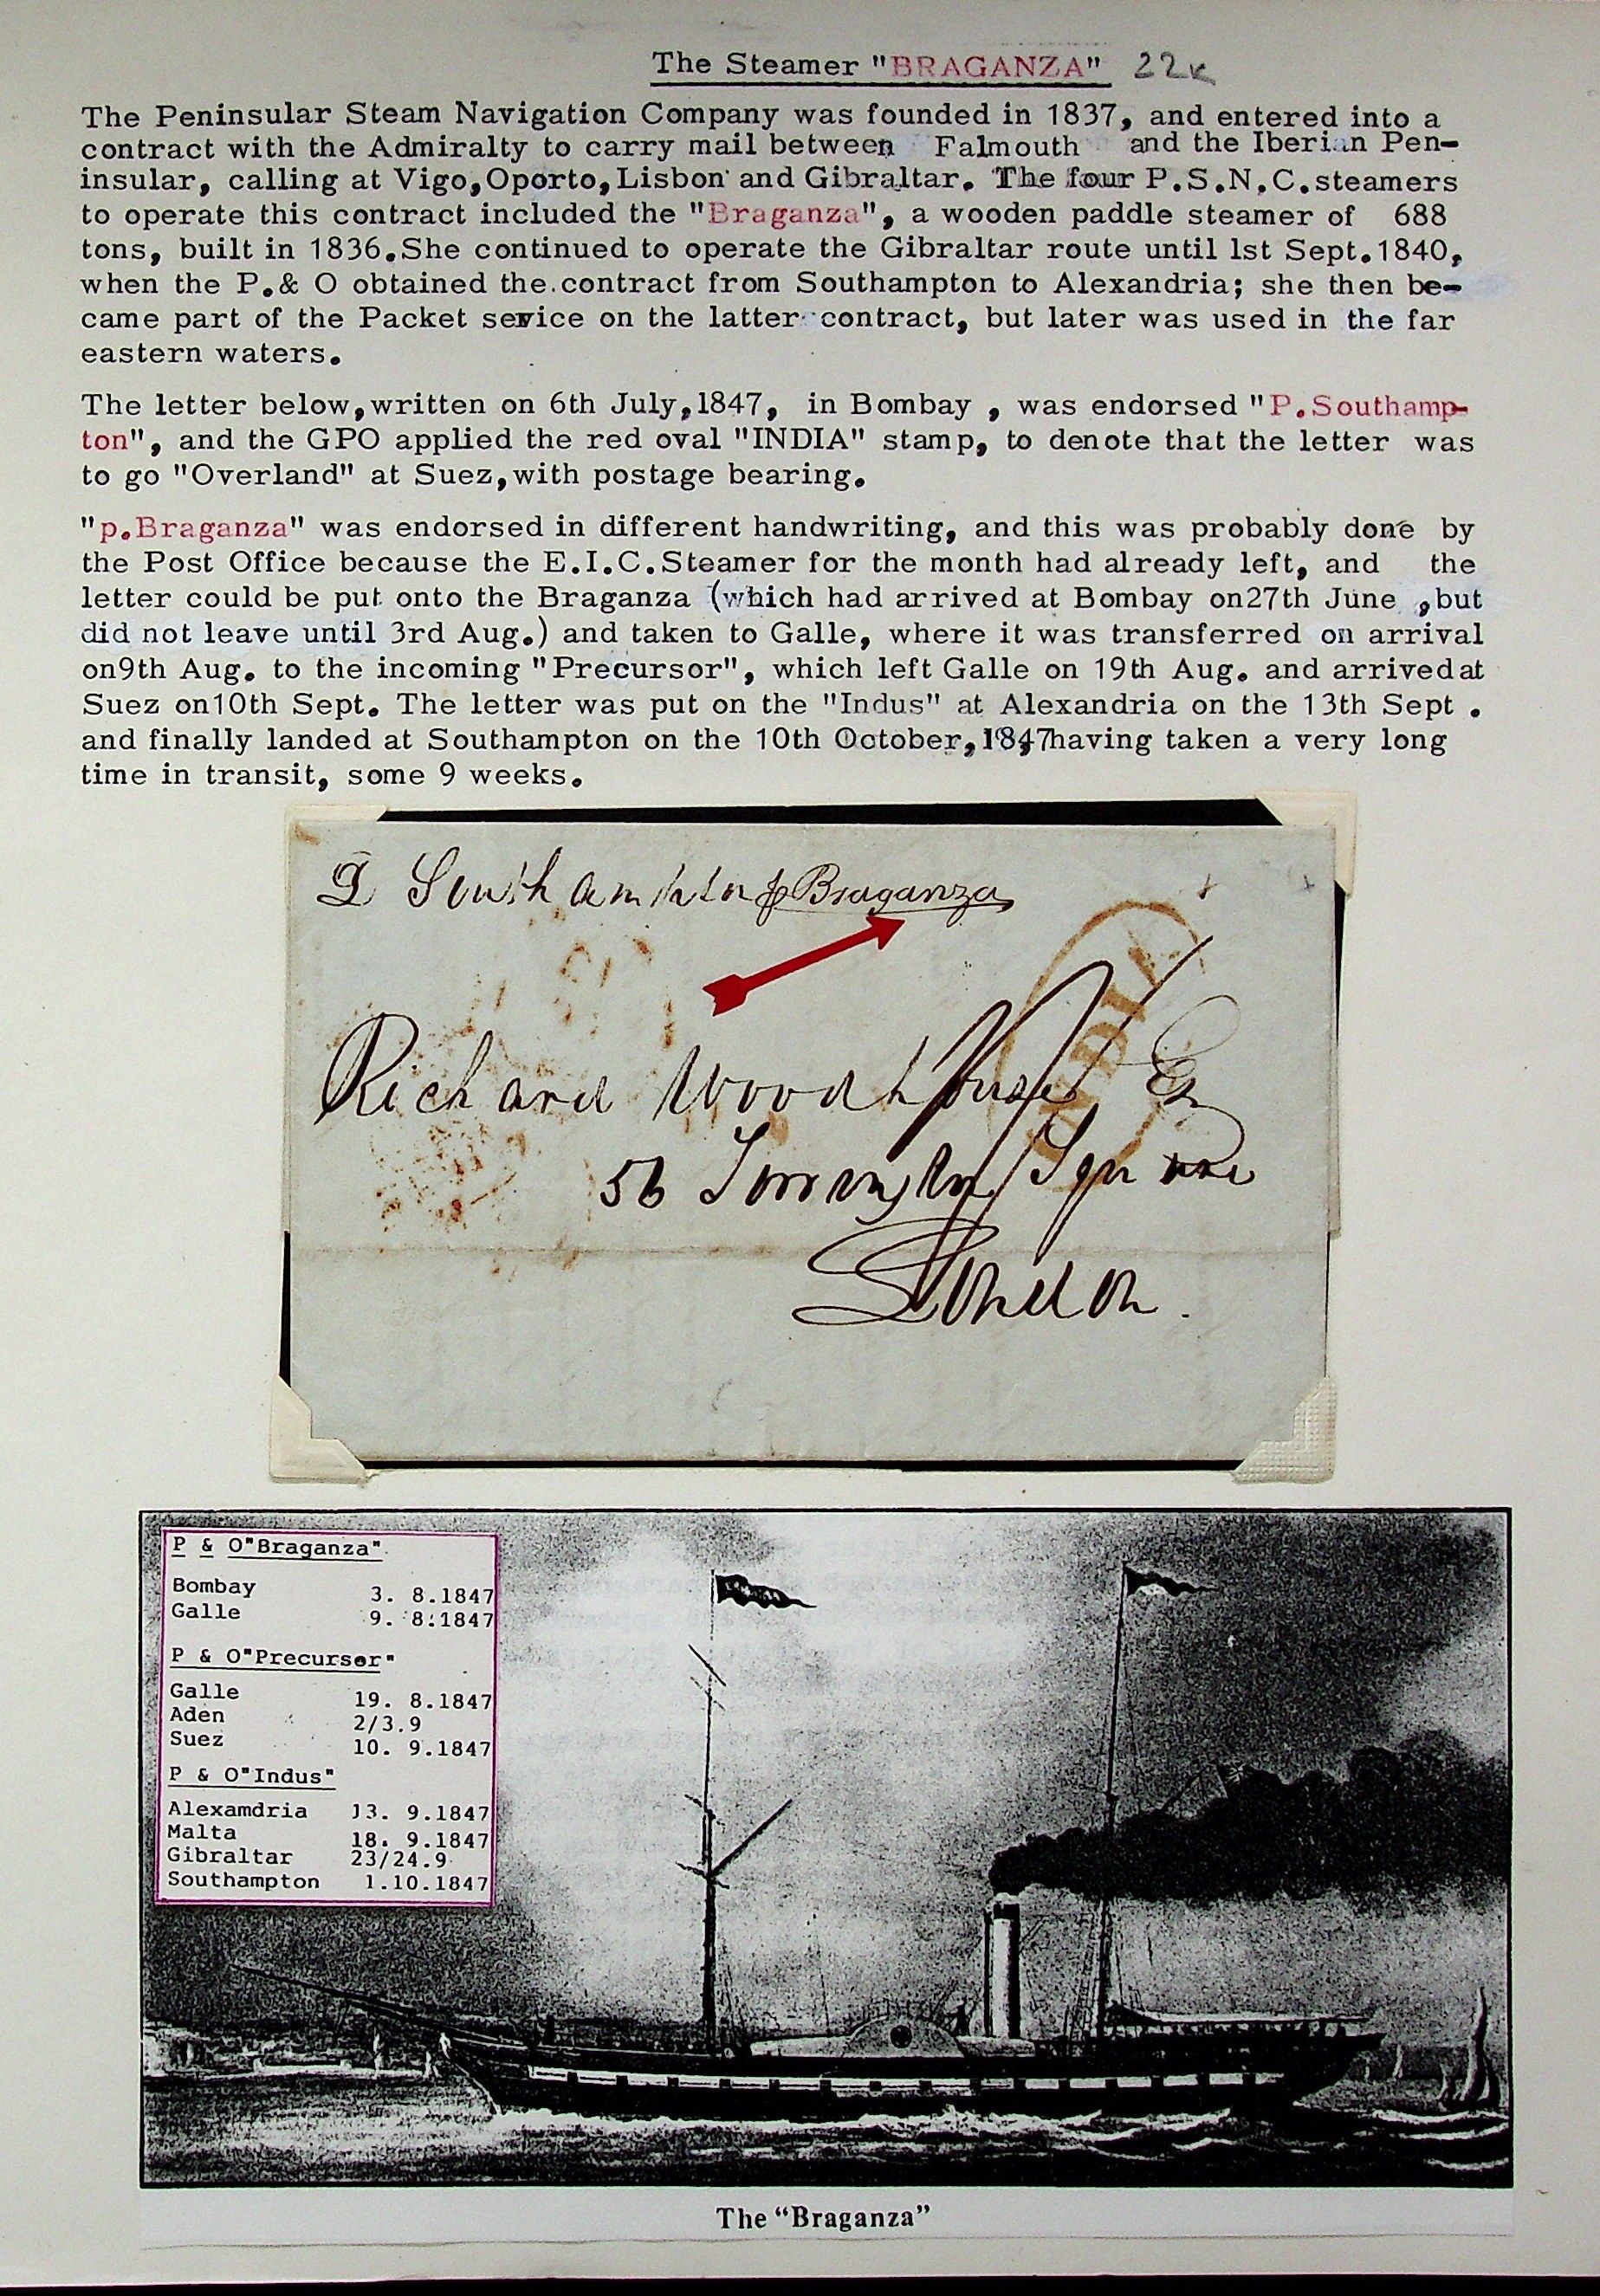 The Steamer "BRAGANZA" 22K
The Peninsular Steam Navigation Company was founded in 1837, and entered into a
contract with the Admiralty to carry mail between Falmouth and the Iberian Pen-
insular, calling at Vigo,Oporto,Lisbon and Gibraltar. The four P.S.N.C.steamers
to operate this contract included the "Braganza", a wooden paddle steamer of 688
tons, built in 1836.She continued to operate the Gibraltar route until 1st Sept.1840,
when the P.& O obtained the.contract from Southampton to Alexandria; she then be-
came part of the Packet service on the latter contract, but later was used in the far
eastern waters.
The letter below,written on 6th July,1847, in Bombay , was endorsed "P.Southamp-
ton", and the GPO applied the red oval "INDIA" stamp, to denote that the letter was
to go "Overland" at Suez,with postage bearing.
"p.Braganza" was endorsed in different handwriting, and this was probably done by
the Post Office because the E.I.C.Steamer for the month had already left, and the
letter could be put onto the Braganza (which had arrived at Bombay on27th June ,but
did not leave until 3rd Aug.) and taken to Galle, where it was transferred on arrival
on9th Aug. to the incoming "Precursor", which left Galle on 19th Aug. and arrivedat
Suez on10th Sept. The letter was put on the "Indus" at Alexandria on the 13th Sept .
and finally landed at Southampton on the 10th October,1847having taken a very long
time in transit, some 9 weeks.
P Southampton p Braganza
INDIA
Richard Woodhouse Esq
56 Torrington Square
London.
P & O"Braganza"
Bombay 3. 8.1847
Galle 9. 8.1847
P & O"Precursor"
Galle 19. 8.1847
Aden 2/3.9
Suez 10. 9.1847
P & O"Indus"
Alexamdria 13. 9.1847
Malta 18. 9.1847
Gibraltar 23/24.9
Southampton 1.10.1847
The "Braganza"